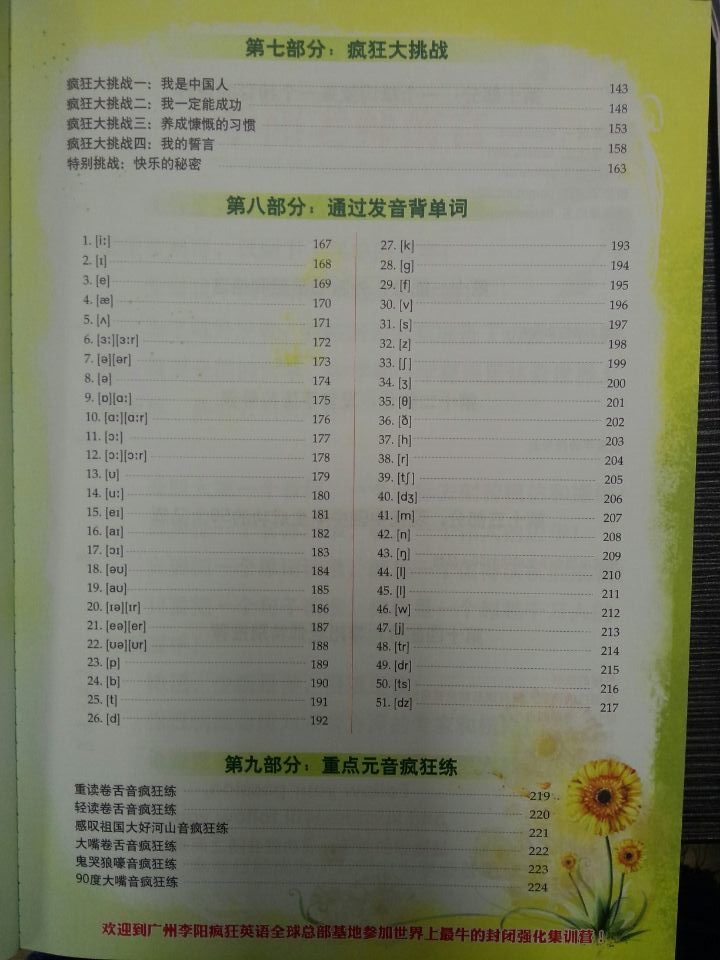 第七部分：疯狂大挑战
疯狂大挑战一：我是中国人 143
疯狂大挑战二：我一定能成功 148
疯狂大挑战三：养成慷慨的习惯 153
疯狂大挑战四：我的誓言 158
特别挑战：快乐的秘密 163
第八部分：通过发音背单词
1. [iː] 167
2. [ɪ] 168
3. [e] 169
4. [æ] 170
5. [ʌ] 171
6. [ɜː][ɜːr] 172
7. [ə][ər] 173
8. [ə] 174
9. [ɒ][ɑː] 175
10. [ɑː][ɑːr] 176
11. [ɔː] 177
12. [ɔː][ɔːr] 178
13. [ʊ] 179
14. [uː] 180
15. [eɪ] 181
16. [aɪ] 182
17. [ɔɪ] 183
18. [əʊ] 184
19. [aʊ] 185
20. [ɪə][ɪr] 186
21. [eə][er] 187
22. [ʊə][ʊr] 188
23. [p] 189
24. [b] 190
25. [t] 191
26. [d] 192
27. [k] 193
28. [g] 194
29. [f] 195
30. [v] 196
31. [s] 197
32. [z] 198
33. [ʃ] 199
34. [ʒ] 200
35. [θ] 201
36. [ð] 202
37. [h] 203
38. [r] 204
39. [tʃ] 205
40. [dʒ] 206
41. [m] 207
42. [n] 208
43. [ŋ] 209
44. [l] 210
45. [l] 211
46. [w] 212
47. [j] 213
48. [tr] 214
49. [dr] 215
50. [ts] 216
51. [dz] 217
第九部分：重点元音疯狂练
重读卷舌音疯狂练 219
轻读卷舌音疯狂练 220
感叹祖国大好河山音疯狂练 221
大嘴卷舌音疯狂练 222
鬼哭狼嚎音疯狂练 223
90度大嘴音疯狂练 224
欢迎到广州李阳疯狂英语全球总部基地参加世界上最牛的封闭强化集训营！